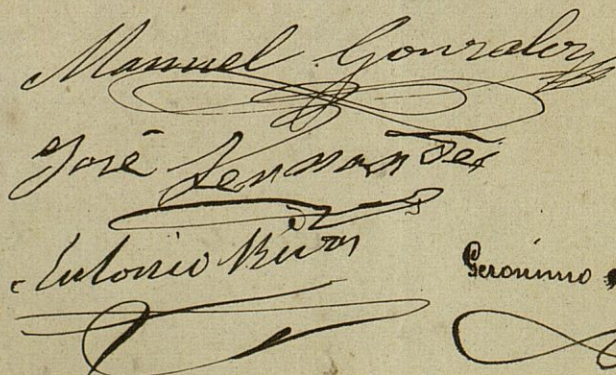 Manuel Gonzalez
José Fernandez
Antonio Rivas
Geronimo